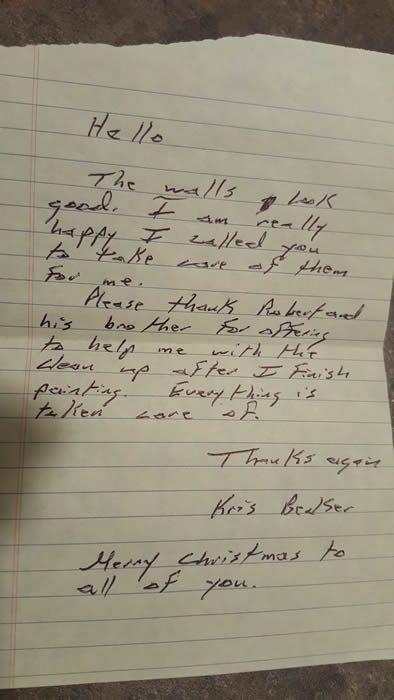 Hello
The walls look
good. I am really
happy I called you
to take care of them
for me.
Please thank Robert and
his brother for offering
to help me with the
clean up after I finish
painting. Everything is
taken care of.
Thanks again
Kris
Merry Christmas to
all of you.